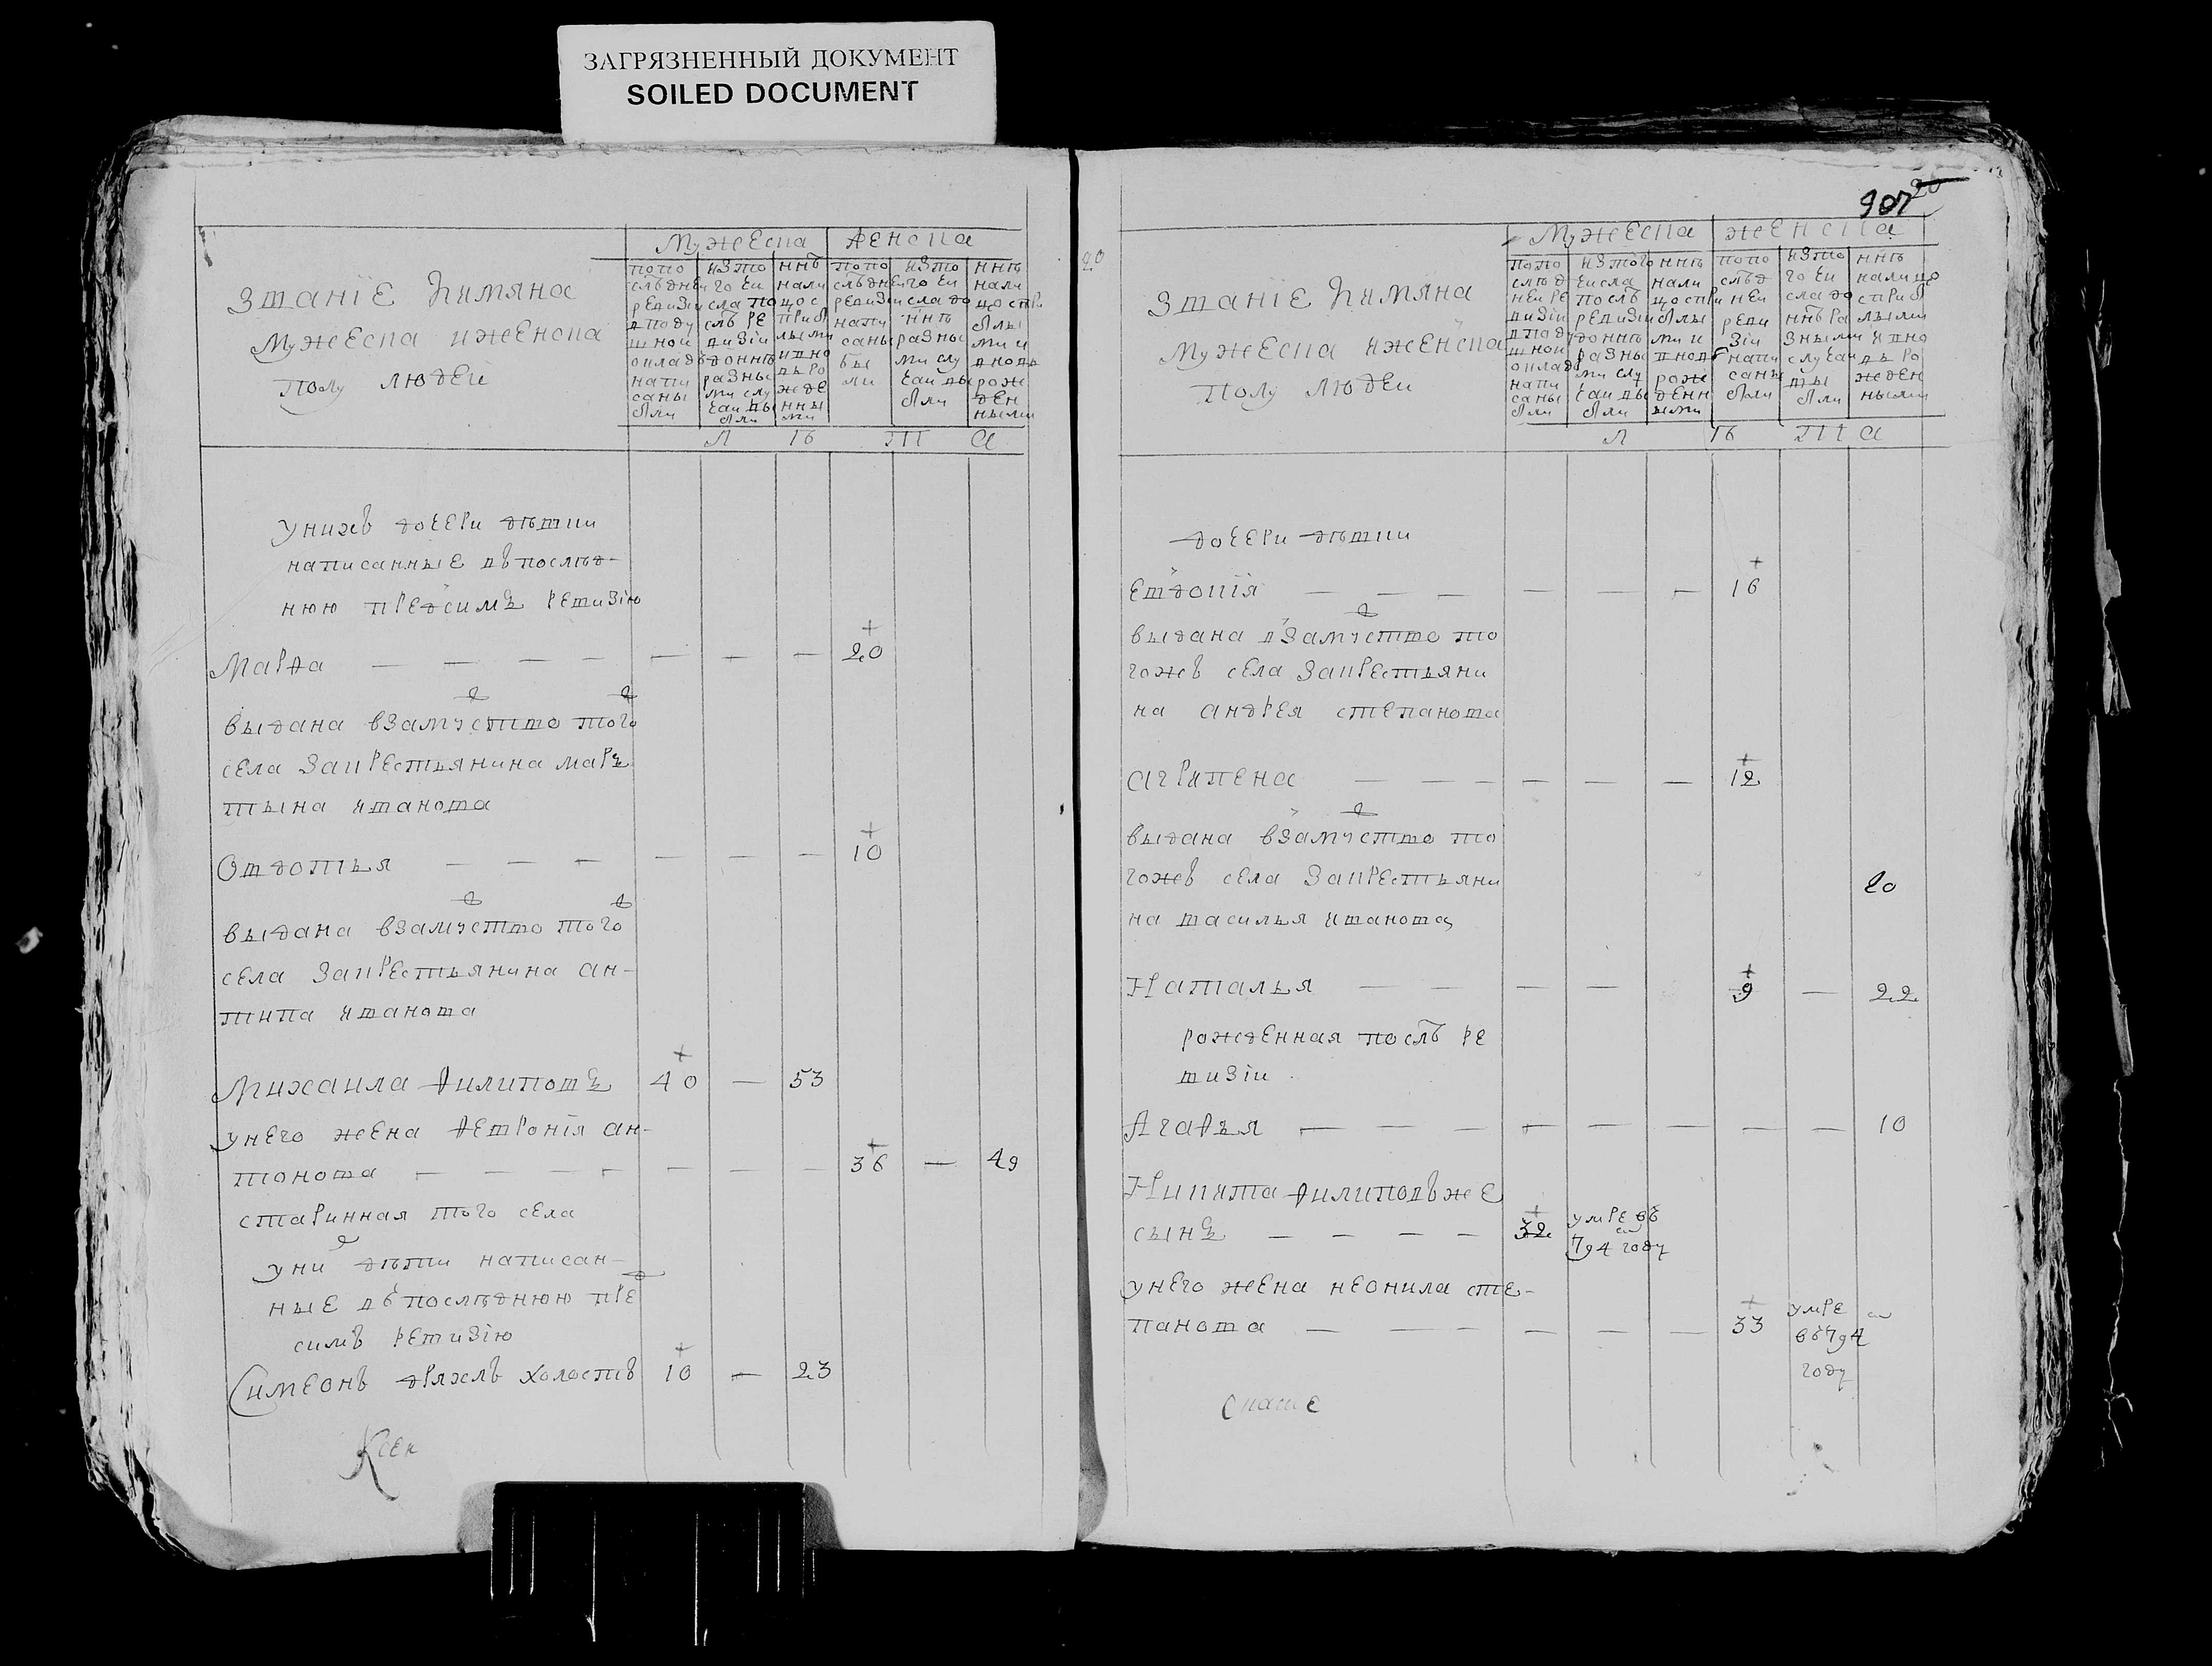 ЗАГРЯЗНЕННЫЙ ДОКУМЕНТ
SOILED DOCUMENT
Званіе и имяна
Мужеска иженска
полу людей
Мужеска
Женска
попо
слѣдней
ревизіи
вподу
шной
окладъ
напи
саны
были
изто
го чи
сла по
слѣ ре
визіи
доннѣ
разны
ми слу
чаи вы
были
ннѣ
нали
цо с
приб
лыми
ивно
вь ро
жде
нны
ми
попо
слѣдней
ревизіи
напи
саны
бы
ли
изто
го чи
сла до
ннѣ
разны
ми слу
чаи вы
были
ннѣ
нали
цо спри
былы
ми и
вновь
рож
ден
ными
Л ѣ т а
Унихъ дочери дѣвки
написанные въпослѣд-
нюю предсимъ ревизію
Марѳа — — — — — — — 20
выдана взамужство того
села закрестьянина мар
тына иванова
Овдотья — — — — — — 10
выдана взамужство того
села закрестьянина ан-
типа иванова
Михаила Филиповъ 40 — 53
унего жена Февронія ан-
тонова — — — — — — — 36 — 49
старинная того села
уних дѣти написан-
ные въпослѣднюю пред
симъ ревизію
Симеонъ дряхлъ холостъ 10 — 23
Ксен
907
20
20
Званіе и имяна
Мужеска иженска
полу людей
Мужеска
женска
попо
слѣд
ней ре
визіи
вподу
шной
окладъ
напи
саны
были
изтого
числа
послѣ
ревизіи
доннѣ
разны
ми слу
чаи вы
были
ннѣ
нали
цо спри
былы
ми и
вновь
рож
денн
ыми
попо
слѣд
ней
реви
зіи
напи
саны
были
изто
го чи
сла до
ннѣ ра
зными
случаи
вы
были
ннѣ
налицо
с приб
лыми
и вно
вь ро
жден
ными
Л ѣ т а
дочери дѣвки
Евдокія — — — — — — 16
выдана взамужство то
гожъ села закрестьяни
на андрея степанова
агрипена — — — — — — 12
выдана взамужство то
гожъ села закрестьяни
20
на василья иванова
Наталья — — — — 9 — 22
рожденная послѣ ре
визіи
Агафья — — — — — — — — 10
Никита филиповъ же
сынъ — — — — 32 умре въ
794 году
унего жена неонила сте-
панова — — — — — — 33 умре
въ794
году
Сказке